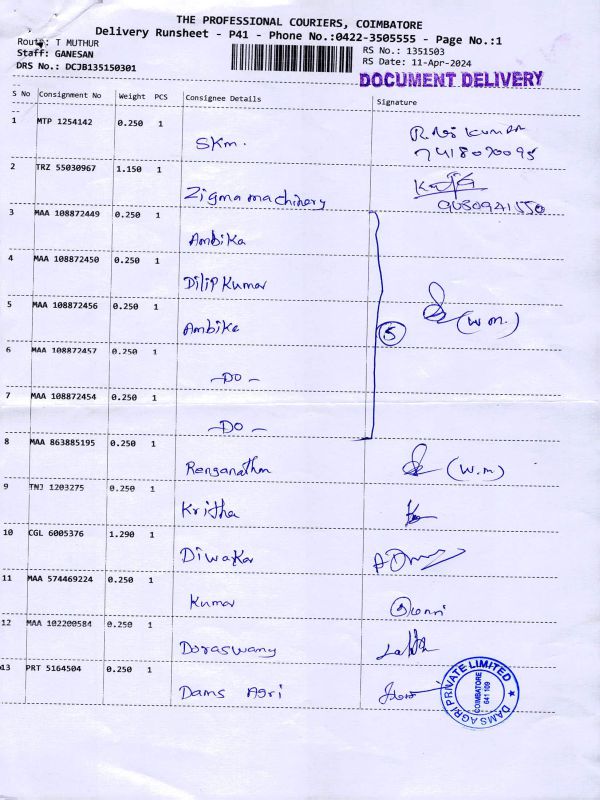 THE PROFESSIONAL COURIERS, COIMBATORE
Delivery Runsheet - P41 - Phone No.:0422-3505555 - Page No.:1
Route: T MUTHUR
RS No.: 1351503
Staff: GANESAN
RS Date: 11-Apr-2024
DRS No.: DCJB135150301
DOCUMENT DELIVERY
S No Consignment No Weight PCS Consignee Details Signature
1 MTP 1254142 0.250 1 SKm.
2 TRZ 55030967 1.150 1 Zigma machinery
3 MAA 108872449 0.250 1 Ambika
4 MAA 108872450 0.250 1 Dilip Kumar
5 MAA 108872456 0.250 1 Ambika
5 (W.M.)
6 MAA 108872457 0.250 1 -DO-
7 MAA 108872454 0.250 1 -DO-
8 MAA 863885195 0.250 1 Renganathan (W.M)
9 TNJ 1203275 0.250 1 Kritha
10 CGL 6005376 1.290 1 Diwakar
11 MAA 574469224 0.250 1 Kumar
12 MAA 102200584 0.250 1 Doraswamy
13 PRT 5164504 0.250 1 Dams Agri
DAMS AGRI PRIVATE LIMITED
COIMBATORE
641 109